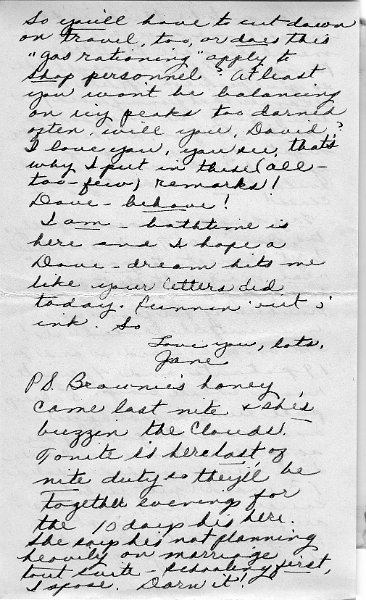 So you'll have to cut down
on travel, too, or does this
"gas rationing" apply to
shop personnel? At least
you wont be balancing
on icy peaks too darned
often, will you, David?
I love you, you see, that's
why I put in these (all-
too-few) remarks!
Dave - behave!
I am - bathtime is
here and I hope a
Dave-dream hits me
like your letters did
today. Runnin' out o'
ink. So
Love you, lots,
Jane
P.S. Brownie's honey
came last nite & she's
buzzin the clouds.
Tonite is her last of
nite duty so they'll be
together evenings for
the 10 days he's here.
She says he's not planning
heavily on marriage
tout suite - schooling first,
I spose. Darn it!